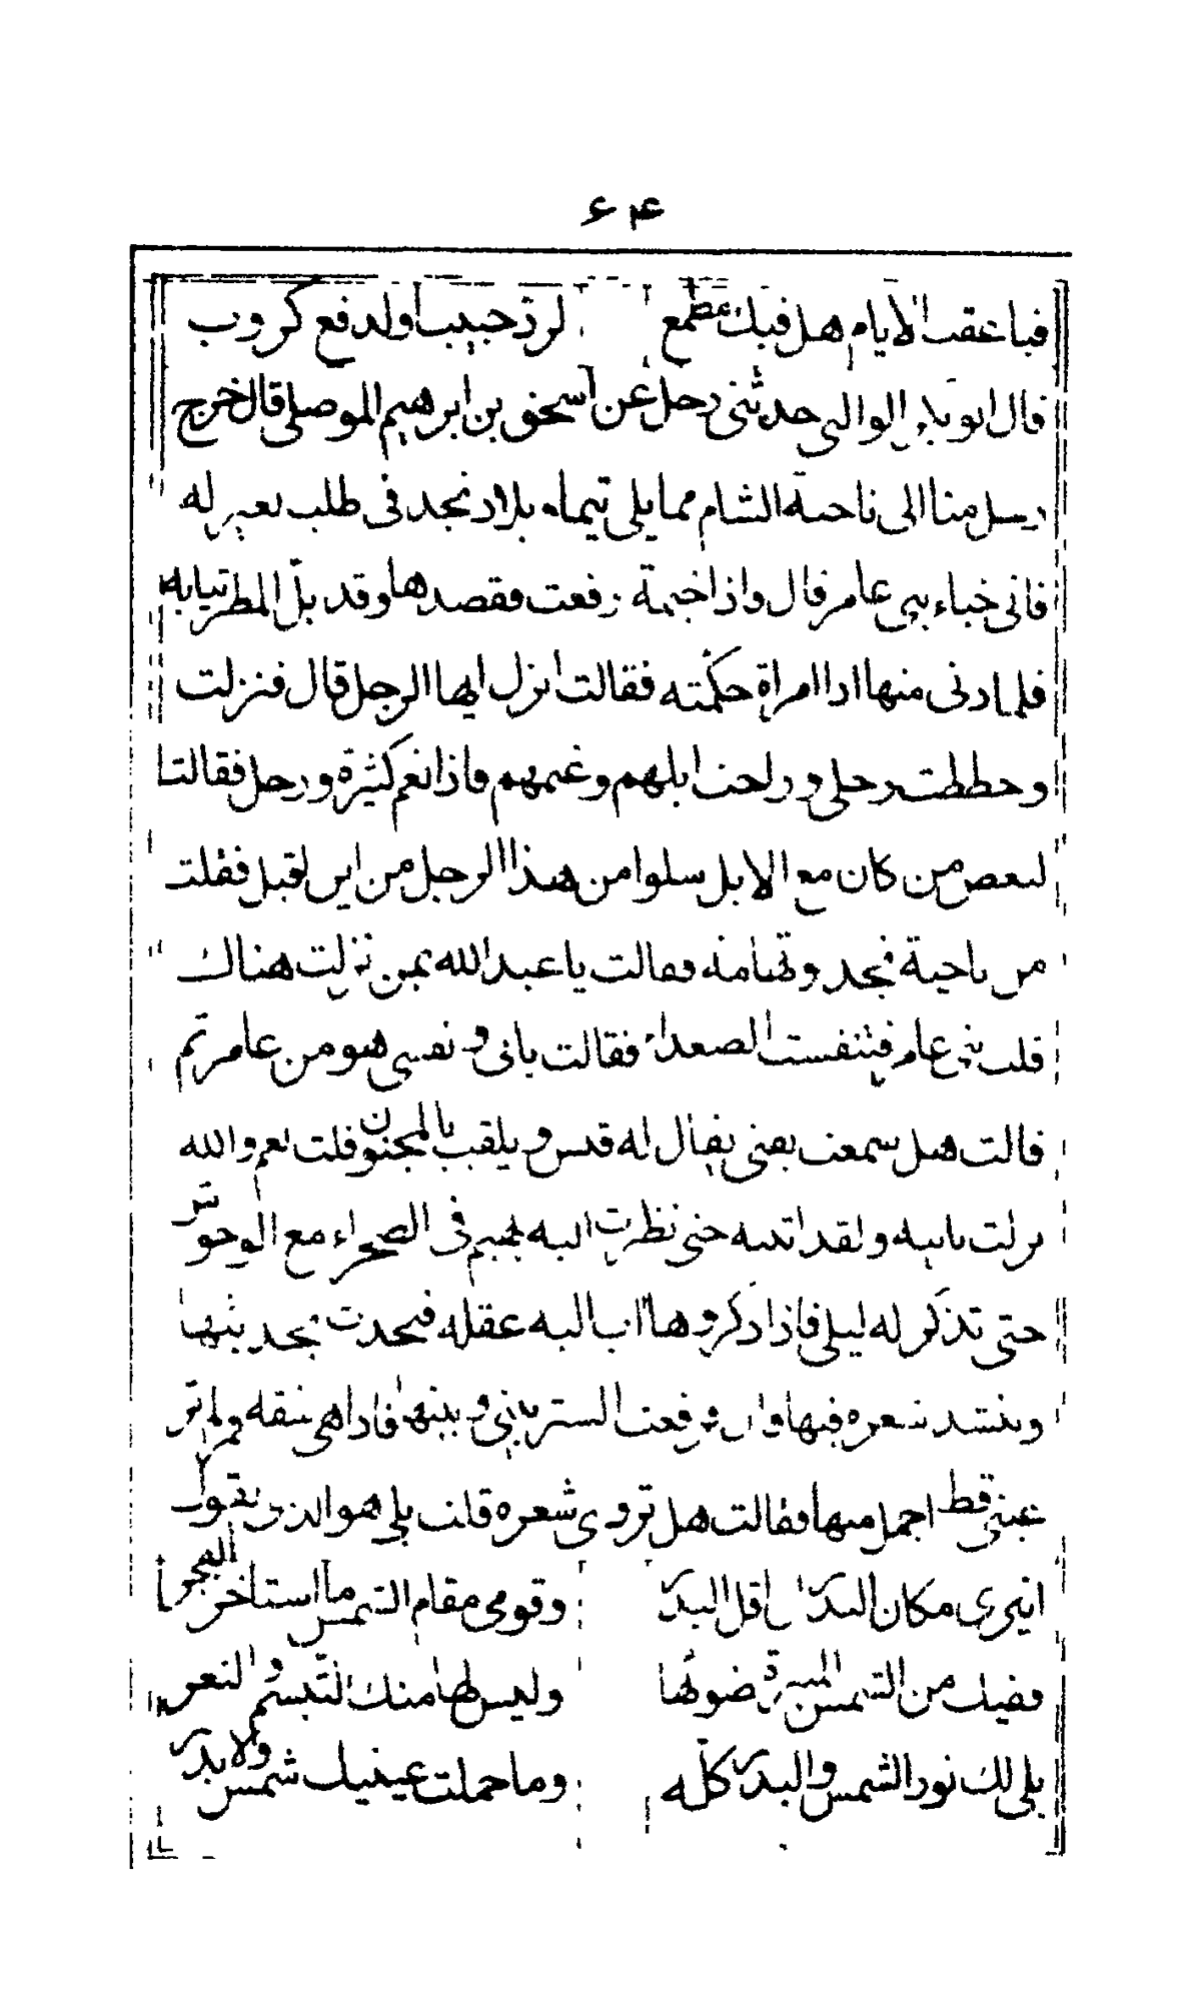 ۶۴
فيا عقب الايام هل فيك مطمع لرد حبيب اولدفع كروب
قال ابو بكر الوالبى حدثنى رجل عن اسحق بن ابراهيم الموصلى قال خرج
رجل منا الى ناحية الشام مما يلى تيماء بلاد نجد فى طلب بعير له
فاتى خباء بنى عامر قال واذا خيمة رفعت فقصدها وقد بلّ المطر ثيابه
فلما دنى منها اذا امراة كلمته فقالت انزل ايها الرجل قال فنزلت
وحططت رحلى وراحت ابلهم وغنمهم فاذا نعم كثيرة ورجل فقالت
لبعض من كان مع الابل سلوا من هذا الرجل من اين اقبل فقلت
من ناحية نجد وتهامة فقالت يا عبد الله بمن نزلت هناك
قلت بنى عامر فتنفست الصعداء فقالت بابى و نفسى هو من عامر ثم
قالت هل سمعت بفتى يقال له قيس ويلقب بالمجنون قلت نعم والله
نزلت بابيه ولقد اتيته حتى نظرت اليه يهيم فى الصحراء مع الوحوش
حتى تذكر له ليلى فاذا ذكروها اب اليه عقله فيحدث بحديثها
وينشد شعره فيها قال فرفعت الستر بينى وبينها فاذا هى شقة ولم تر
عينى قط اجمل منها فقالت هل تروى شعره قلت بلى هو الذى يقول
انيرى مكان البدر ان افل البدر وقومى مقام الشمس ما استاخر الفجر
ففيك من الشمس المنيرة ضوئها وليس لها منك التبسم و الثغر
بلى لك نور الشمس والبدر كلّه وما حملت عينيك شمس ولا بدر